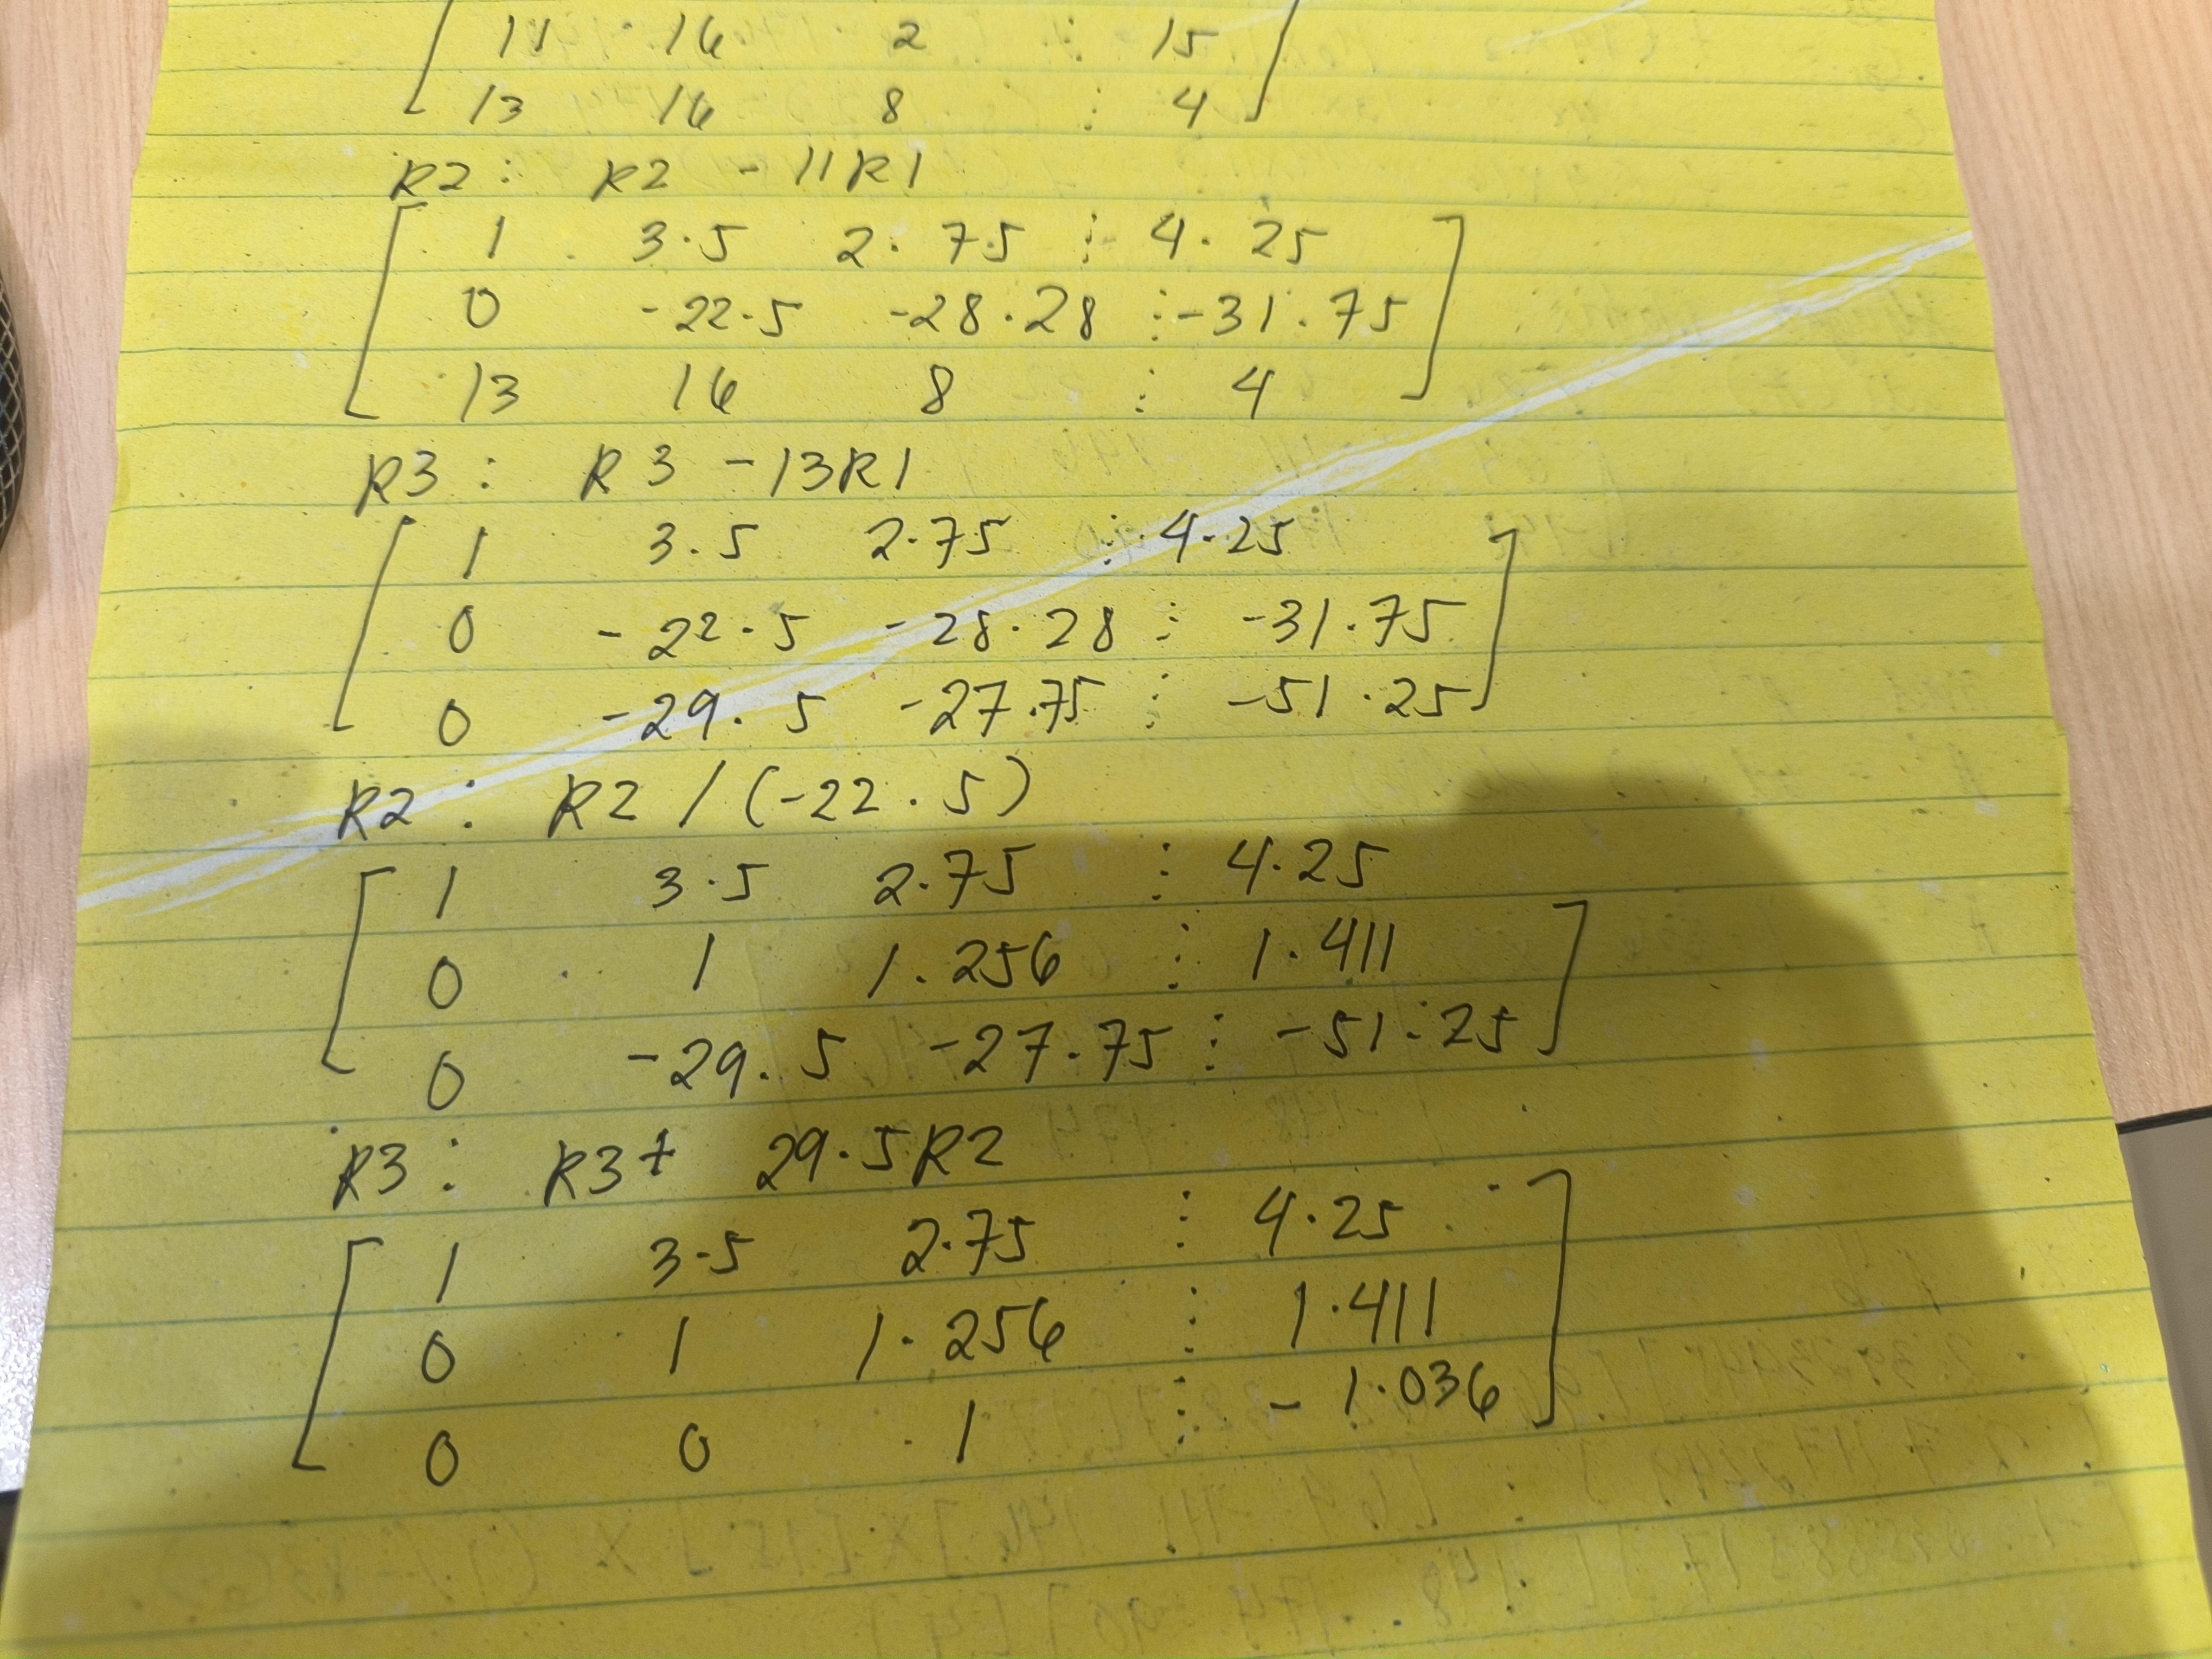 11 16 2 ⋮ 15
13 16 8 ⋮ 4
R2: R2 - 11R1
1 3.5 2.75 ⋮ 4.25
0 -22.5 -28.28 ⋮ -31.75
13 16 8 ⋮ 4
R3: R3 - 13R1
1 3.5 2.75 ⋮ 4.25
0 -22.5 -28.28 ⋮ -31.75
0 -29.5 -27.75 ⋮ -51.25
R2: R2 / (-22.5)
1 3.5 2.75 ⋮ 4.25
0 1 1.256 ⋮ 1.411
0 -29.5 -27.75 ⋮ -51.25
R3: R3 + 29.5R2
1 3.5 2.75 ⋮ 4.25
0 1 1.256 ⋮ 1.411
0 0 1 ⋮ -1.036